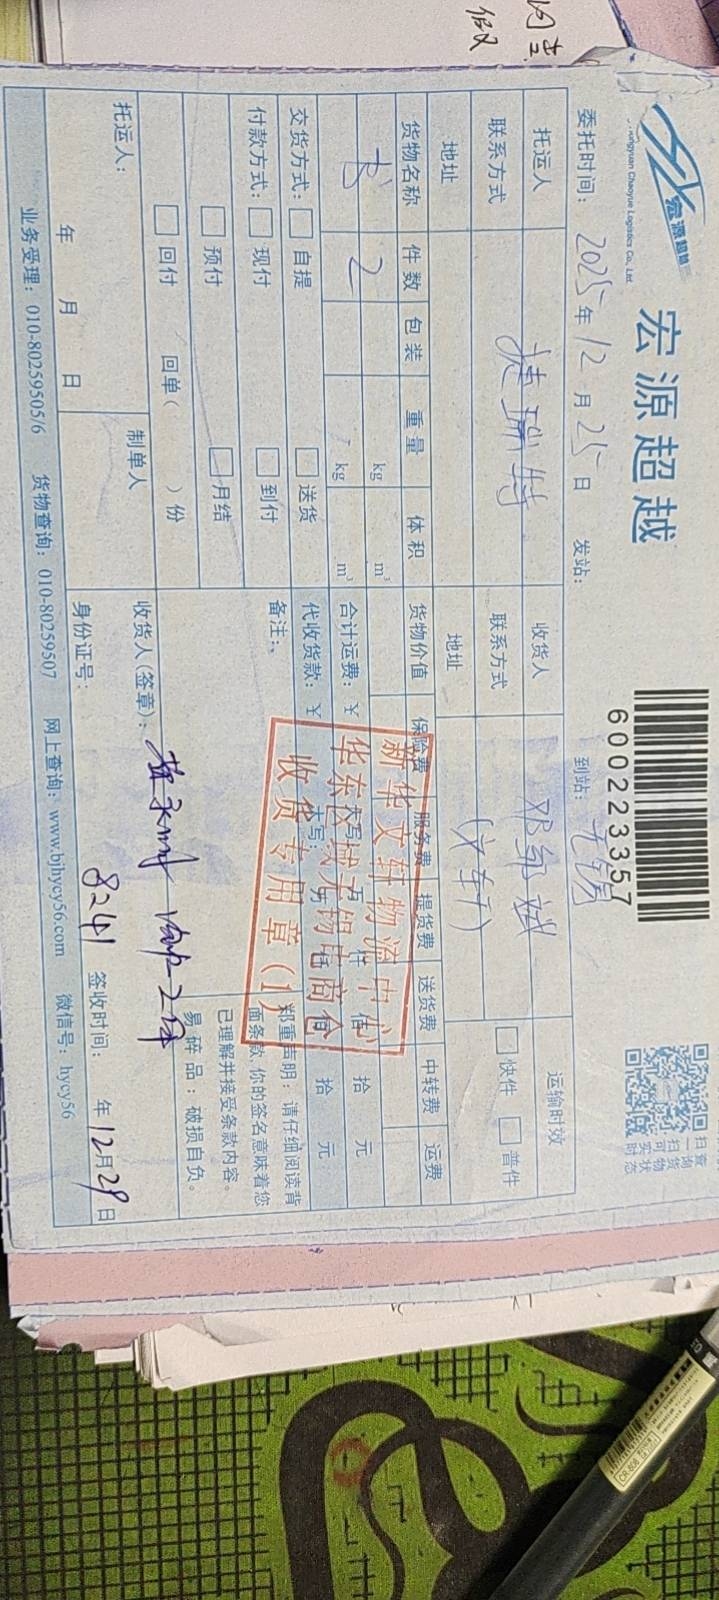 宏源超越
Hongyuan Chaoyue Logistics Co., Ltd.
宏源超越
6002233357
扫查
扫询
可货
实物
时状
态
委托时间: 2025年12月25日 发站: 到站: 无锡
托运人 捷瑞特 收货人 运输时效
联系方式 联系方式 (文轩) 快件 普件
地址 地址
货物名称 件数 包装 重量 体积 货物价值 保险费 服务费 提货费 送货费 中转费 运费
书 2 kg m³
kg m³ 合计运费: ¥ 大写: 万 仟 佰 拾 元
交货方式: 自提 送货 代收货款: ¥ 大写: 万 仟 佰 拾 元
付款方式: 现付 到付 备注:
预付 月结
回付 回单( )份
郑重声明: 请仔细阅读背
面条款, 你的签名意味着您
已理解并接受条款内容。
易碎品: 破损自负。
新华文轩物流中心
华东区域无锡电商仓
收货专用章(1)
托运人: 制单人 收货人(签章):
年 月 日 身份证号: 8241 签收时间: 年12月29日
业务受理: 010-80259505/6 货物查询: 010-80259507 网上查询: www.bjhycy56.com 微信号: hycy56